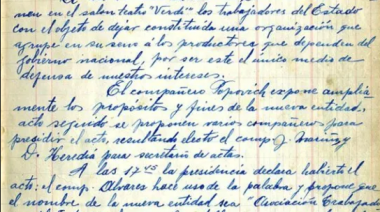 men en el salon teatro "Verdi" los trabajadores del Estado
con el objeto de dejar constituida una organización que
agrupe en su seno á los productores que dependen del
gobierno nacional, por ser este el unico medio de
defensa de nuestros intereses.
El compañero Popovich expone amplia-
mente los propósito y fines de la nueva entidad,
acto seguido se proponen varios compañeros para
presidir el acto, resultando electo el comp. J.
D. Heredia para secretario de actas.
A las 17 hs la presidencia declara habierto el
acto: el comp. Alvares hace uso de la palabra y propone que
el nombre de la nueva entidad sea "Asociación Trabajado